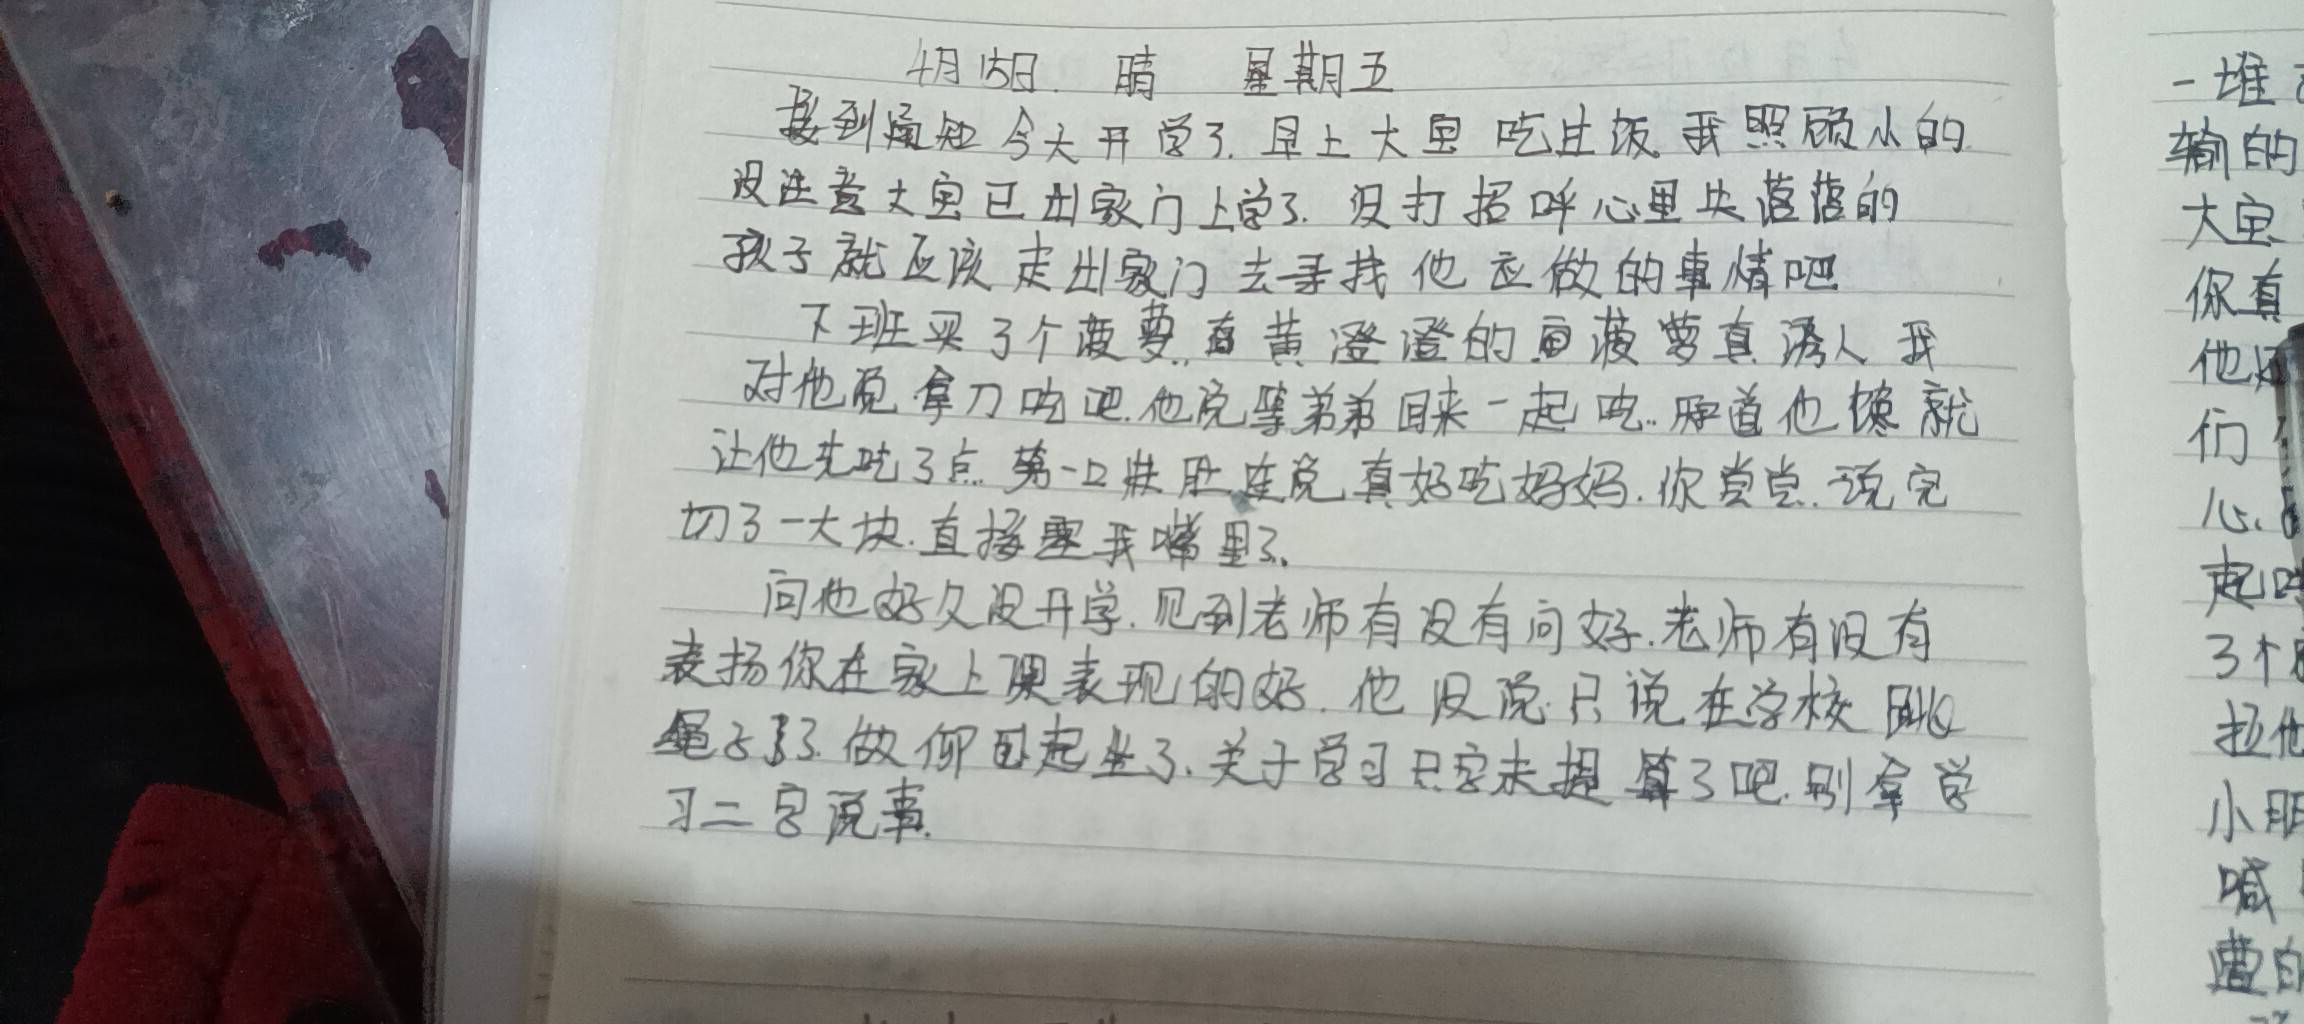 4月15日. 晴 星期五
接到通知今天开学了.早上大宝吃过饭我照顾小的.
没注意大宝已出家门上学了.没打招呼心里失落落的
孩子就应该走出家门去寻找他应做的事情吧
下班买了个菠萝..看黄澄澄的菠萝真诱人我
对他说拿刀吃吧.他说等弟弟回来一起吃..知道他馋就
让他先吃了点.第一口下肚.连说真好吃妈妈.你尝尝.说完
切了一大块.直接塞我嘴里了.
问他好久没开学.见到老师有没有问好.老师有没有
表扬你在家上课表现的好.他没说.只说在学校跳
绳子了.做仰卧起坐了.关于学习只字未提算了吧.别拿学
习二字说事.
一堆
输的
大宝
你真
他还
们
心.
起
3个
拉他
小朋
喊
遭的